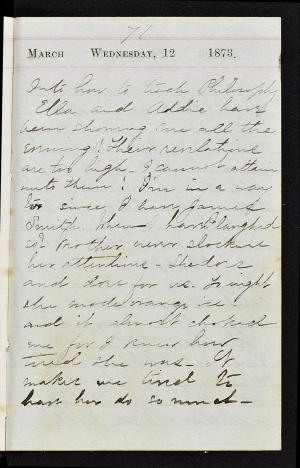 71
MARCH WEDNESDAY, 12 1873.
Into how to teach Philosophy
Ella and Addie have
been showing me all the
evening! Their revelations
are too high - I cannot attain
unto them! I'm in a way
since I hear James
Smith. When I have laughed
so! Mother never slackens
her attentions - She does
and does for us. To night
she made orange ice!
and it almost choked
me for I knew how
tired she was - It
makes me tired to
have her do so much -